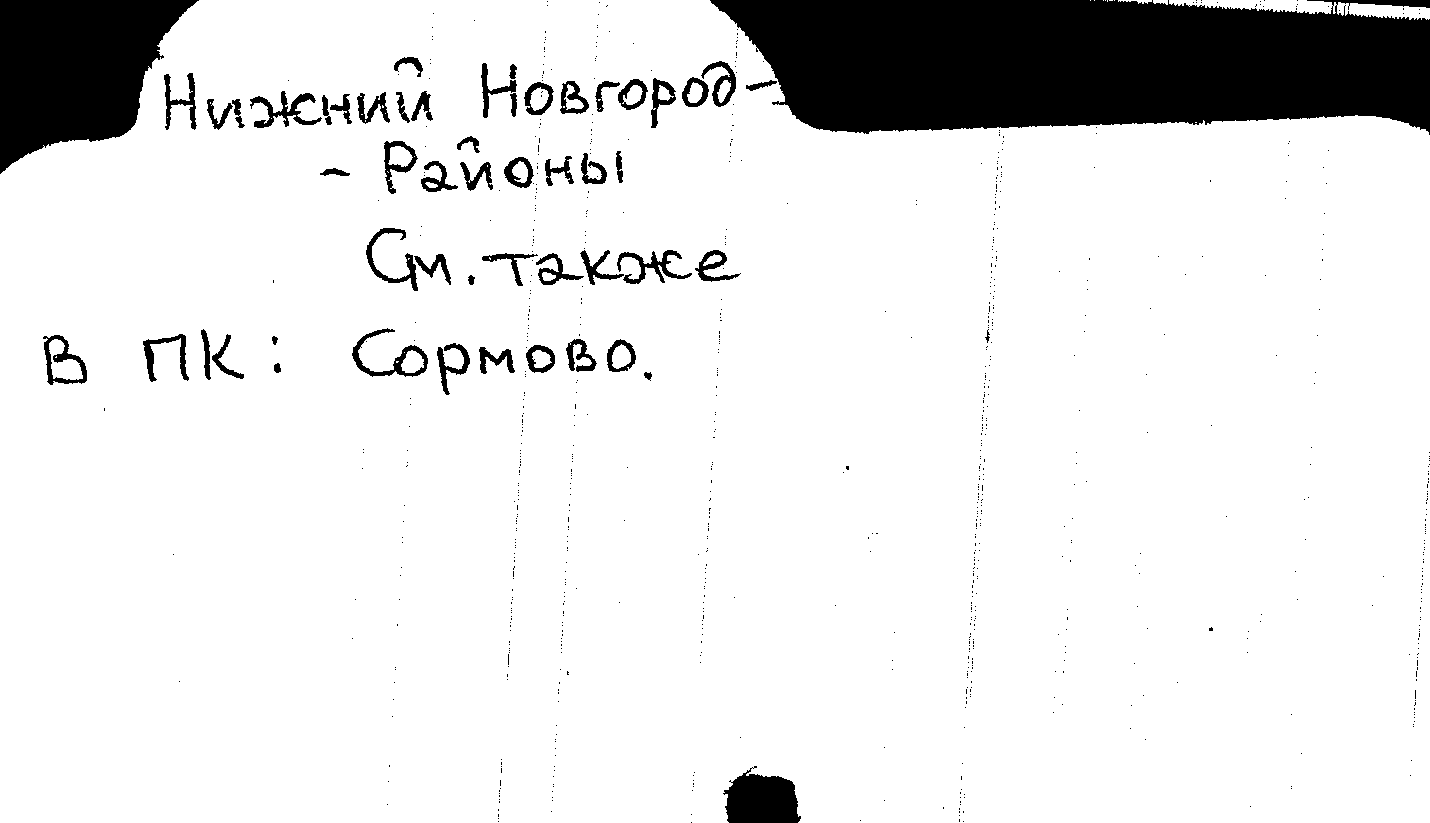 Нижний Новгород -
- Районы
См. также
В ПК: Сормово.